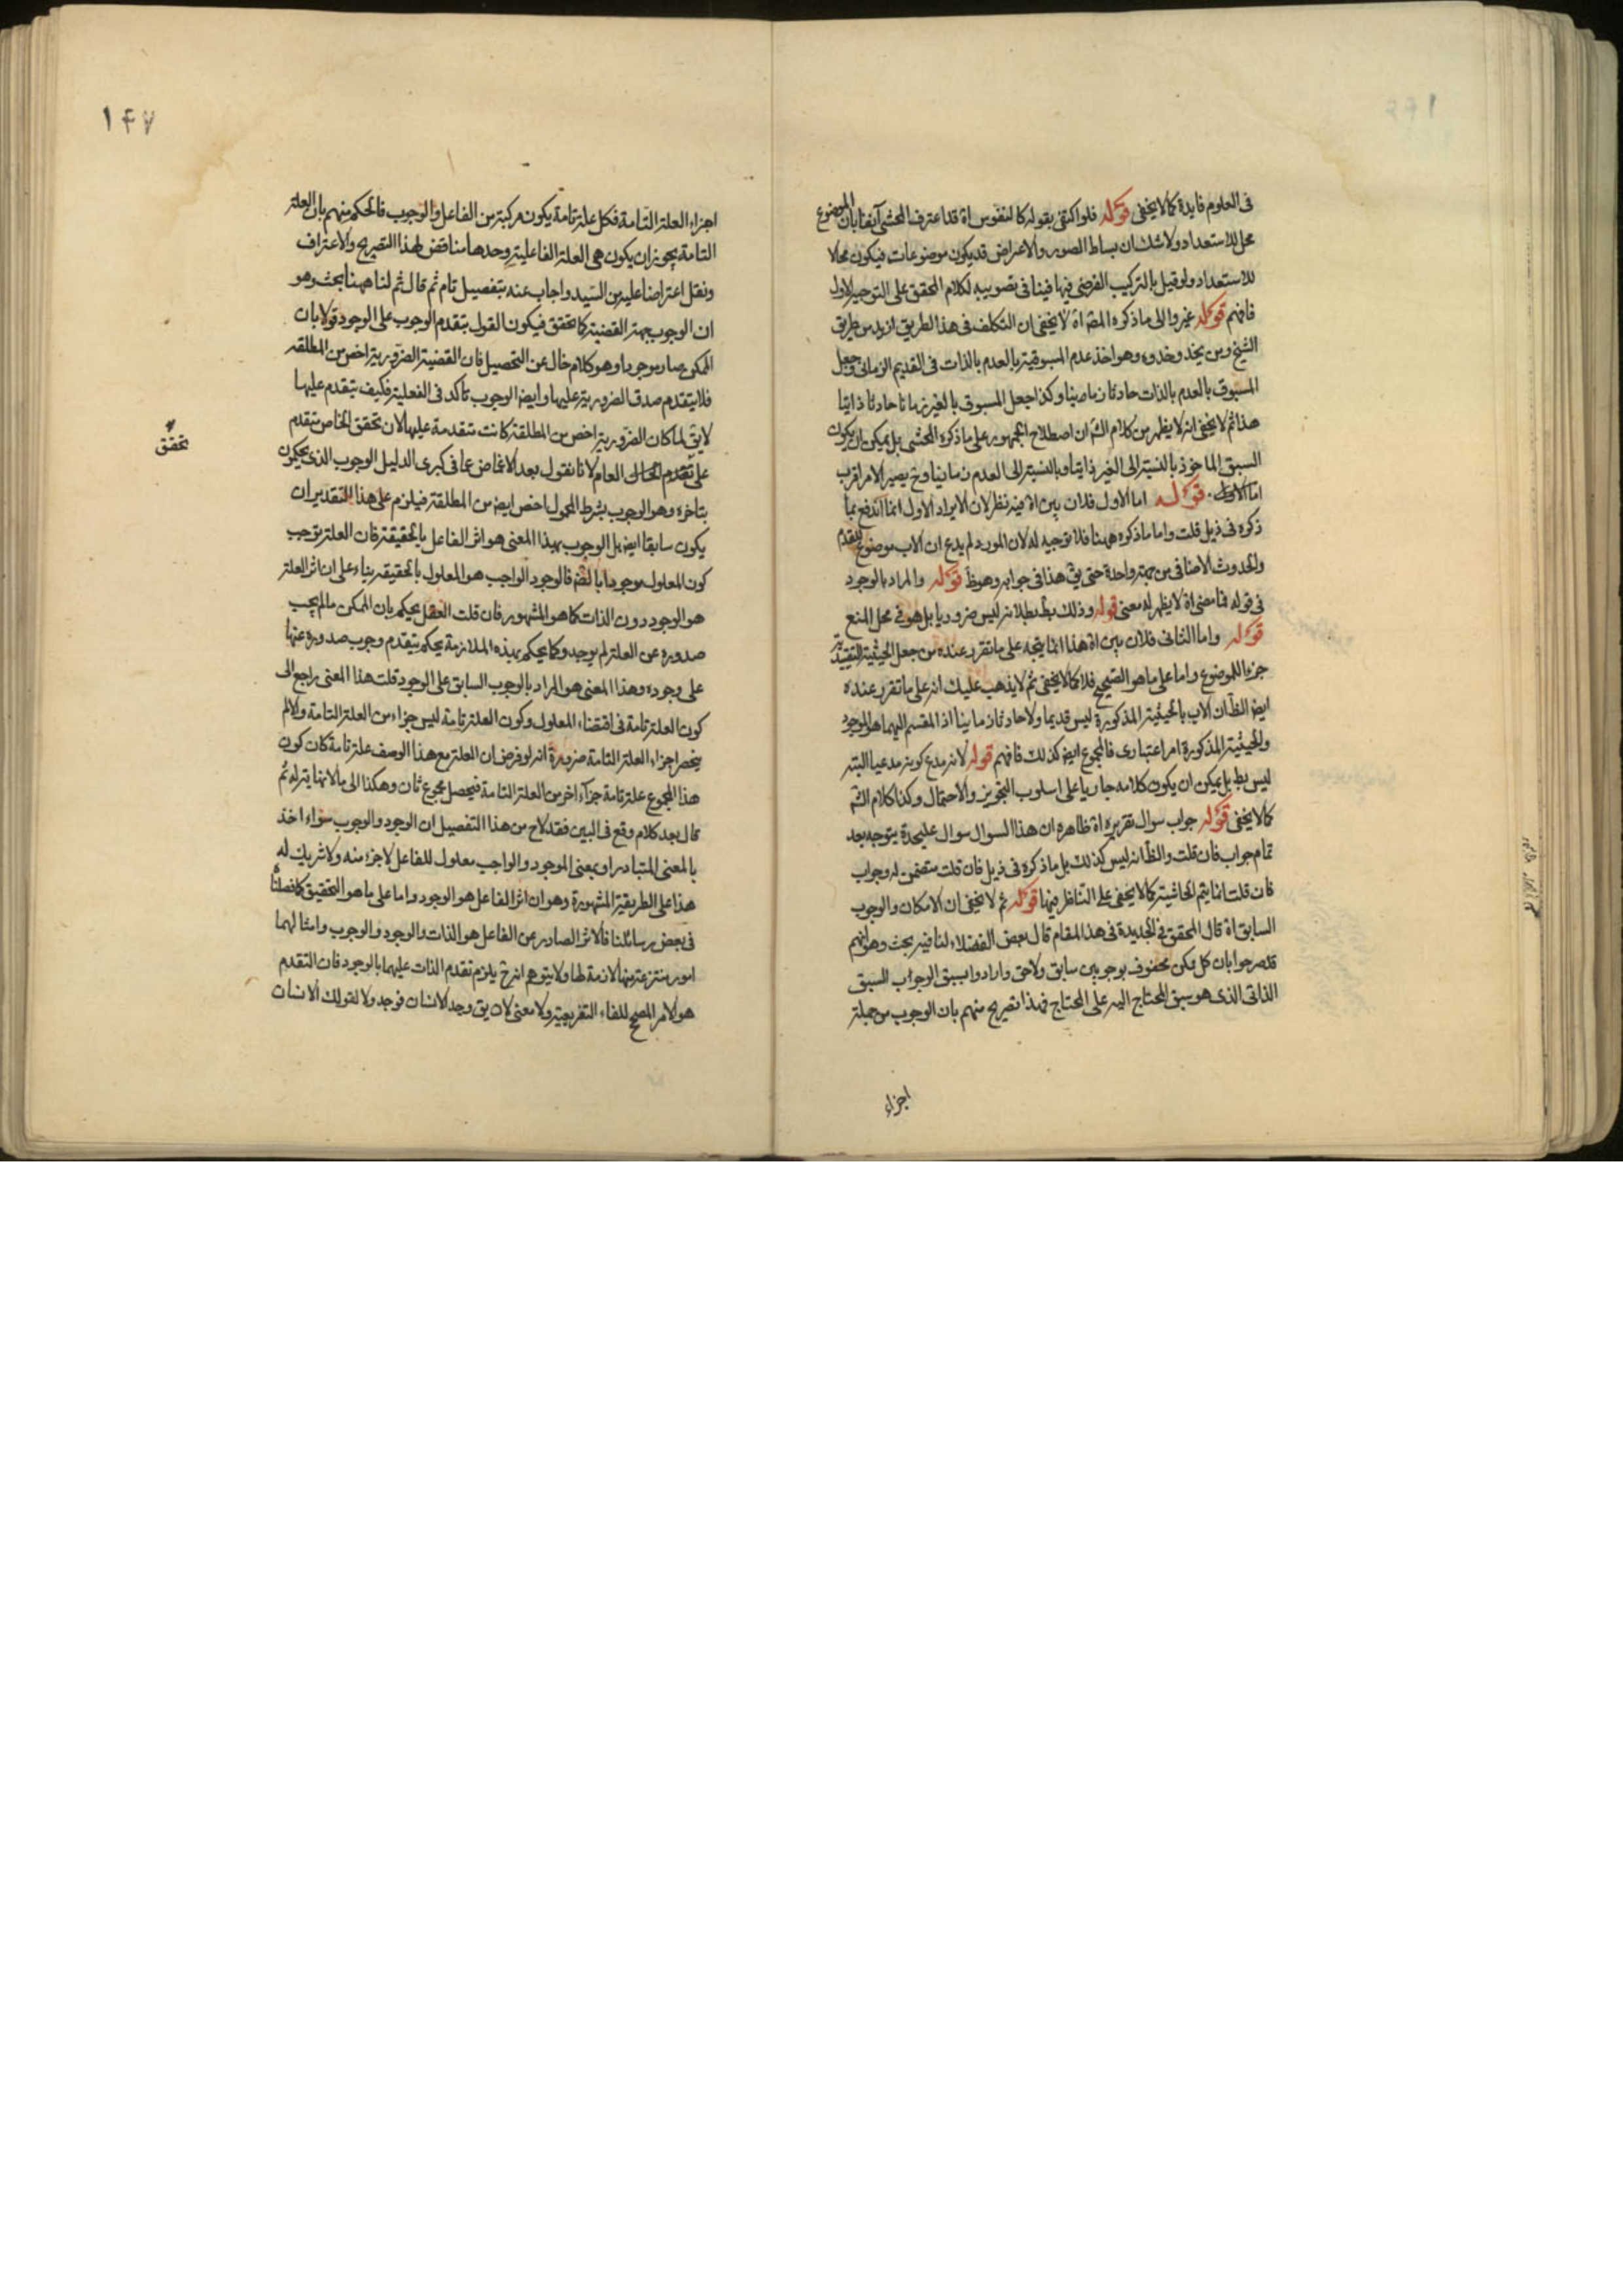 فى العلوم فايدة كما لا يخفى قوله فلو اكتفى بقوله كالنفوس اه قد اعترف المحشى آنفا بان الموضوع
محل للاستعداد ولا شك ان بساط الصور والاعراض قد يكون موضوعات فيكون محالا
للاستعداد ولو قيل بالتركيب الفرضى فيها فينافى تصويبه لكلام المحقق على التوجيه الاول
فافهم قوله غير والى ما ذكره المص اه لا يخفى ان التكلف فى هذا الطريق ازيد من طريق
الشيخ ومن يحذو حذوه وهو اخذ عدم المسبوقية بالعدم بالذات فى القديم الزمانى وجعل
المسبوق بالعدم بالذات حادثا زمانيا وكذا جعل المسبوق بالغير زمانا حادثا ذاتيا
هذا ثم لا يخفى انه لا يظهر من كلام الش ان اصطلاح الجمهور على ما ذكره المحشى بل يمكن ان يكون
السبق الماخوذ بالنسبة الى الغير ذاتيا وبالنسبة الى العدم زمانيا وح يصير الامر اقرب
اما الاول قوله اما الاول فلان بين اه فيه نظر لان الايراد الاول انما اندفع بما
ذكره فى ذيل قلت واما ما ذكره ههنا فلا توجيه له لان المورد لم يدع ان الاب موضوع للتقدم
والحدوث الاضافى من جهة واحدة حتى يق هذا فى جوابه وهو ظ قوله والمراد بالوجود
فى قوله فما مضى اه لا يظهر له معنى قوله وذلك بط بطلانه ليس ضروريا بل هو فى محل المنع
قوله واما الثانى فلان بين اه هذا انما يتجه على ما تقرر عنده من جعل الحيثية التقييدية
جزءا للموضوع واما على ما هو الصحيح فلا كما لا يخفى ثم لا يذهب عليك انه على ما تقرر عنده
ايض الظ ان الاب بالحيثية المذكورة ليس قديما ولا حادثا زمانيا اذ المقسم اليهما هو الموجود
والحيثية المذكورة امر اعتبارى فالمجموع ايض كذلك فافهم قوله لانه مدع كونه مدعيا البته
ليس بط بل يمكن ان يكون كلامه جاريا على اسلوب التجويز والاحتمال وكذا كلام الش
كما لا يخفى قوله جواب سوال تقريره اه ظاهره ان هذا السوال سوال عليحدة يتوجه بعد
تمام جواب فان قلت والظ انه ليس كذلك بل ما ذكره فى ذيل فان قلت متضمن له وجواب
فان قلت انما يتم لحاشيته كما لا يخفى على الناظر فيها قوله ثم لا يخفى ان الامكان والوجوب
السابق اه قال المحقق فى الجديدة فى هذا المقام قال بعض الفضلاء لنا فيه بحث وهو انهم
قد صرحوا بان كل ممكن محفوف بوجوبين سابق ولاحق وارادوا بسبق الوجوب السبق
الذاتى الذى هو سبق المحتاج اليه على المحتاج فهذا تصريح منهم بان الوجوب من جملة
اجزاء
١۴٧
اجزاء العلة التامة فكل علة تامة يكون مركبة من الفاعل والوجوب فالحكم منهم بان العلة
التامة يجوز ان يكون هى العلة الفاعلية وحدها مناقض لهذا التصريح والاعتراف
ونقل اعتراضا عليه من السيد واجاب عنه بتفصيل تام ثم قال ثم لنا ههنا بحث وهو
ان الوجوب جهة القضية كما تحقق فيكون القول بتقدم الوجوب على الوجود قولا بان
الممكن صار موجودا وهو كلام خال عن التحصيل فان القضية الضرورية اخص من المطلقة
فلا يتقدم صدق الضرورية عليها وايض الوجوب تاكد فى الفعلية فكيف يتقدم عليها
لا يق لما كان الضرورية اخص من المطلقة كانت متقدمة عليها لان تحقق الخاص متقدم
على تقدم العام لانا نقول بعد الاغماض عما فى كبرى الدليل الوجوب الذى يحكمون
تحقق
بتاخره وهو الوجوب بشرط المحمول اخص ايض من المطلقة فيلزم على هذا التقدير ان
يكون سابقا ايض بل الوجوب بهذا المعنى هو اثر الفاعل بالحقيقة فان العلة توجب
كون المعلول موجودا بالض فالوجود الواجب هو المعلول بالحقيقة بناء على ان اثر العلة
هو الوجود دون الذات كما هو المشهور فان قلت العقل يحكم بان الممكن ما لم يجب
صدوره عن العلة لم يوجد وكما يحكم بهذه الملازمة يحكم بتقدم وجوب صدوره عنها
على وجوده وهذا المعنى هو المراد بالوجوب السابق على الوجود قلت هذا المعنى راجع الى
كون العلة تامة فى اقتضاء المعلول وكون العلة تامة ليس جزاء من العلة التامة والا لم
ينحصر اجزاء العلة التامة ضرورة انه لو فرض ان العلة مع هذا الوصف علة تامة كان كون
هذا المجموع علة تامة جزآ اخر من العلة التامة فيحصل مجموع ثان وهكذا الى ما لا نهاية له ثم
قال بعد كلام وقع فى البين فقد لاح من هذا التفصيل ان الوجود والوجوب سواء اخذ
بالمعنى المتبادر او بمعنى الموجود والواجب معلول للفاعل لا جزء منه ولا شريك له
هذا على الطريقة المشهورة وهو ان اثر الفاعل هو الوجود واما على ما هو التحقيق كما فصلناه
فى بعض رسائلنا فالاثر الصادر عن الفاعل هو الذات والوجود والوجوب وامثالهما
امور منتزعة منها لازمة لها ولا يتوهم انه ح يلزم تقدم الذات عليهما بالوجود فان التقدم
هو الامر المصحح للفاء التفريعية ولا معنى لان يق وجد الانسان فوجد ولا لقولك الانسان